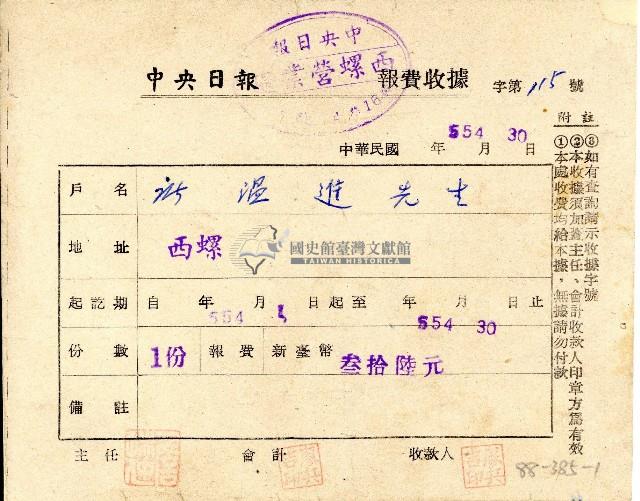 中央日報
西螺營業
中央日報 報費收據 字第115號
554 30
中華民國 年 月 日
戶名 許溫進先生
地址 西螺
國史館臺灣文獻館
TAIWAN HISTORICA
起訖期 自 年 月 日起至 年 月 日止
554 1 554 30
份數 1份 報費 新臺幣 叁拾陸元
備註
主任 會計 收款人
附註
①本處收費均給本據,無據請勿付款
②本收據須加蓋主任、會計收款人印章方為有效
③如有查詢請示收據字號
88-385-1